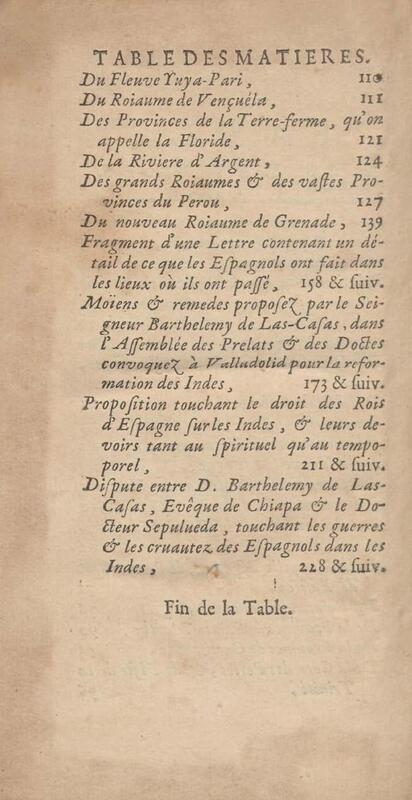 TABLE DES MATIERES.
Du Fleuve Yuya-Pari, 110
Du Roiaume de Vençuéla, 111
Des Provinces de la Terre-ferme, qu'on
appelle la Floride, 121
De la Riviere d'Argent, 124
Des grands Roiaumes & des vaſtes Pro-
vinces du Perou, 127
Du nouveau Roiaume de Grenade, 139
Fragment d'une Lettre contenant un dé-
tail de ce que les Eſpagnols ont fait dans
les lieux où ils ont paſſé, 158 & ſuiv.
Moïens & remedes propoſez par le Sei-
gneur Barthelemy de Las-Caſas, dans
l'Aſſemblée des Prelats & des Doctes
convoquez à Valladolid pour la refor-
mation des Indes, 173 & ſuiv.
Propoſition touchant le droit des Rois
d'Eſpagne ſur les Indes, & leurs de-
voirs tant au ſpirituel qu'au tempo-
porel, 211 & ſuiv.
Diſpute entre D. Barthelemy de Las-
Caſas, Evêque de Chiapa & le Do-
cteur Sepulueda, touchant les guerres
& les cruautez des Eſpagnols dans les
Indes, 228 & ſuiv.
Fin de la Table.